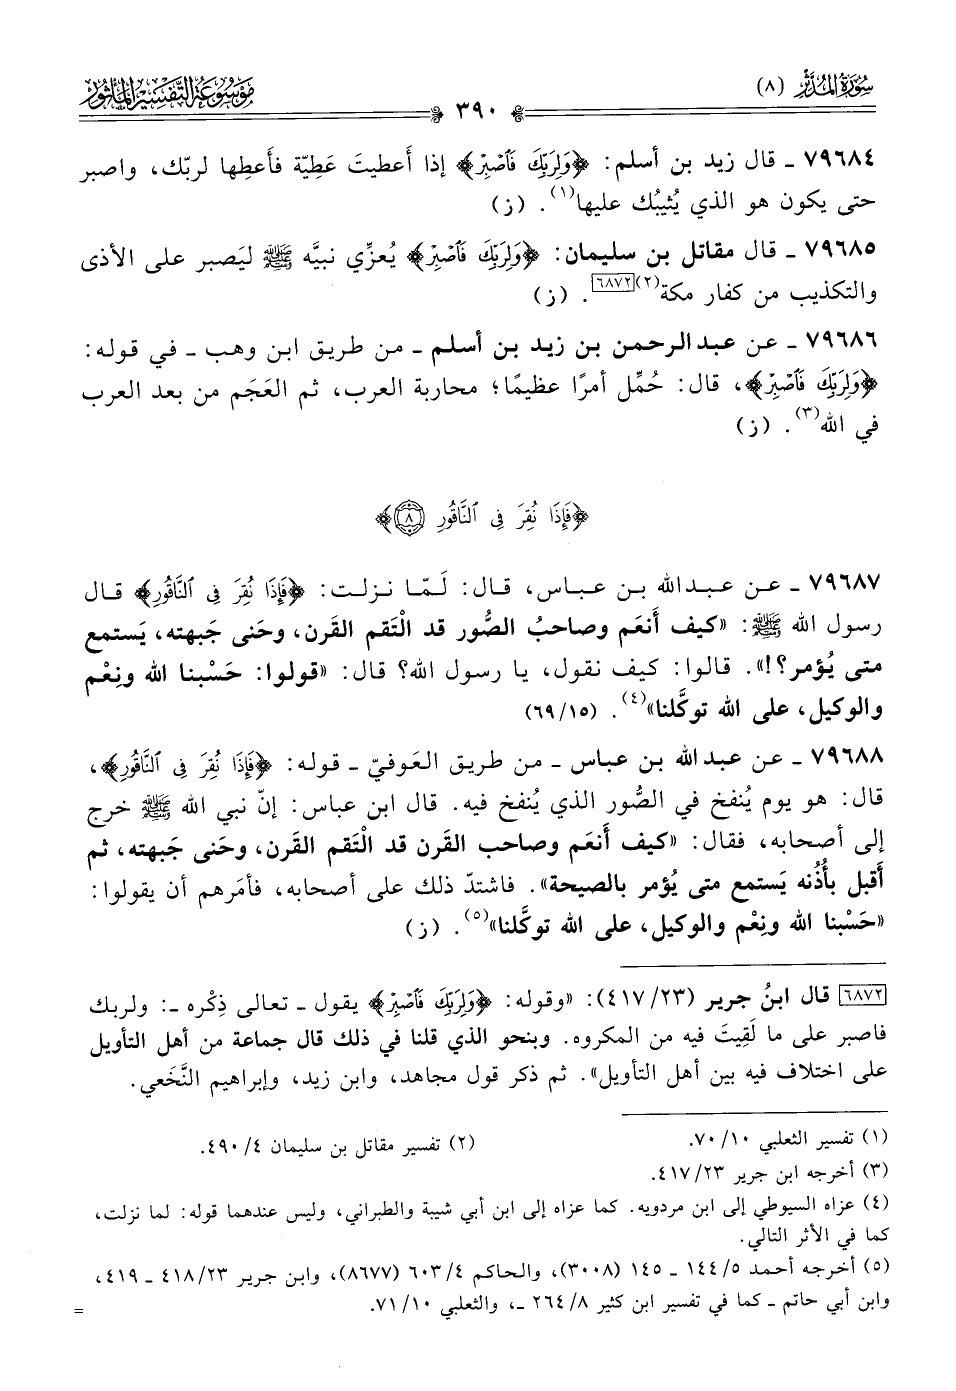 سُورَةُ المُدَّثِّر (٨)
٣٩٠
مَوْسُوعَة التَّفْسِير المَأْثُور
٧٩٦٨٤ ـ قال زيد بن أسلم: ﴿وَلِرَبِّكَ فَٱصْبِرْ﴾ إذا أَعطيتَ عَطِيّة فأَعطِها لربّك، واصبر
حتى يكون هو الذي يُثيبُك عليها(١). (ز)
٧٩٦٨٥ ـ قال مقاتل بن سليمان: ﴿وَلِرَبِّكَ فَٱصْبِرْ﴾ يُعزِّي نبيَّه ﷺ ليَصبر على الأذى
والتكذيب من كفار مكة(٢)[٦٨٧٢]. (ز)
٧٩٦٨٦ ـ عن عبد الرحمن بن زيد بن أسلم ـ من طريق ابن وهب ـ في قوله:
﴿وَلِرَبِّكَ فَٱصْبِرْ﴾، قال: حُمِّل أمرًا عظيمًا؛ محاربة العرب، ثم العَجَم من بعد العرب
في الله(٣). (ز)
﴿فَإِذَا نُقِرَ فِى ٱلنَّاقُورِ ٨﴾
٧٩٦٨٧ ـ عن عبد الله بن عباس، قال: لَمّا نزلت: ﴿فَإِذَا نُقِرَ فِى ٱلنَّاقُورِ﴾ قال
رسول الله ﷺ: «كيف أَنعَم وصاحبُ الصُّور قد الْتَقم القَرن، وحَنى جَبهته، يَستمع
متى يُؤمر؟!». قالوا: كيف نقول، يا رسول الله؟ قال: «قولوا: حَسْبنا الله ونِعْم
والوكيل، على الله توكَّلنا»(٤). (١٥/٦٩)
٧٩٦٨٨ ـ عن عبد الله بن عباس ـ من طريق العَوفيّ ـ قوله: ﴿فَإِذَا نُقِرَ فِى ٱلنَّاقُورِ﴾،
قال: هو يوم يُنفخ في الصُّور الذي يُنفخ فيه. قال ابن عباس: إنّ نبي الله ﷺ خرج
إلى أصحابه، فقال: «كيف أَنعَم وصاحب القَرن قد الْتَقم القَرن، وحَنى جَبهته، ثم
أَقبل بأُذُنه يَستمع متى يُؤمر بالصيحة». فاشتدّ ذلك على أصحابه، فأمَرهم أن يقولوا:
«حَسْبنا الله ونِعْم والوكيل، على الله توكَّلنا»(٥). (ز)
[٦٨٧٢] قال ابنُ جرير (٢٣/٤١٧): «وقوله: ﴿وَلِرَبِّكَ فَٱصْبِرْ﴾ يقول ـ تعالى ذِكْره ـ: ولربك
فاصبر على ما لَقِيتَ فيه من المكروه. وبنحو الذي قلنا في ذلك قال جماعة من أهل التأويل
على اختلاف فيه بين أهل التأويل». ثم ذكر قول مجاهد، وابن زيد، وإبراهيم النَّخَعي.
(١) تفسير الثعلبي ١٠/٧٠.
(٢) تفسير مقاتل بن سليمان ٤/٤٩٠.
(٣) أخرجه ابن جرير ٢٣/٤١٧.
(٤) عزاه السيوطي إلى ابن مردويه. كما عزاه إلى ابن أبي شيبة والطبراني، وليس عندهما قوله: لما نزلت،
كما في الأثر التالي.
(٥) أخرجه أحمد ٥/١٤٤ ـ ١٤٥ (٣٠٠٨)، والحاكم ٤/٦٠٣ (٨٦٧٧)، وابن جرير ٢٣/٤١٨ ـ ٤١٩،
وابن أبي حاتم ـ كما في تفسير ابن كثير ٨/٢٦٤ ـ، والثعلبي ١٠/٧١.
=